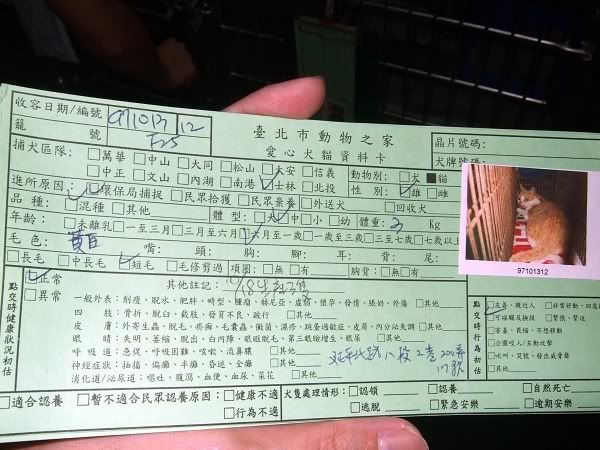 收容日期/編號 971013 12
籠 號 F25
臺北市動物之家
愛心犬貓資料卡
晶片號碼:
犬牌號碼:
捕犬區隊: □萬華 □中山 □大同 □松山 □大安 □信義
□中正 □文山 □內湖 □南港 □士林 □北投
動物別: □犬 ■貓
性 別: □雄 □雌
進所原因: □環保局捕捉 □民眾拾獲 □民眾棄養 □外送犬 □回收犬
品 種: □混種 □其他
體 型: □大 □中 □小 □幼 體重: 3 Kg
年齡: □未離乳 □一至三月 □三月至六月 □六月至一歲 □一歲至三歲 □三至七歲 □七歲以上
毛 色: 黃白 嘴: 頭: 胸: 腳: 耳: 背: 尾:
□長毛 □中長毛 □短毛 □毛修剪過 項圈: □無 □有 胸背: □無 □有
97101312
點交時健康狀況初估
□正常
□異常
其他註記:
一般外表: 削瘦、脫水、肥胖、畸型、腫瘤、疝氣、虛弱、懷孕、發情、脹奶、外傷 □其他
四 肢: 骨折、脫臼、截肢、發育不良、跛行 □其他
皮 膚: 外寄生蟲、脫毛、疥癬、毛囊蟲、黴菌、濕疹、跳蚤過敏症、皮屑、內分泌失調 □其他
眼 睛: 失明、萎縮、脫出、白內障、眼瞼脫毛、第三眼瞼增生、眼分泌物 □其他
呼 吸 道: 急促、呼吸困難、咳嗽、流鼻膿 □其他
神經症狀: 抽搐、偏癱、半癱、昏迷、全癱 □其他
消化道/泌尿道: 嘔吐、腹瀉、血便、血尿、尿花 □其他
點交時行為初估
□友善、親近人 □非常好動、四處
□可碰觸及撫摸 □緊張、緊迫
□害羞、畏縮、不想移動
□企圖咬人/主動攻擊
□犬叫、兄猛、發出威脅聲
□其他
□適合認養 □暫不適合民眾認養原因: □健康不適
□行為不適
犬隻處理情形: □認領 □認養 □自然死亡
□逃脫 □緊急安樂 □逾期安樂